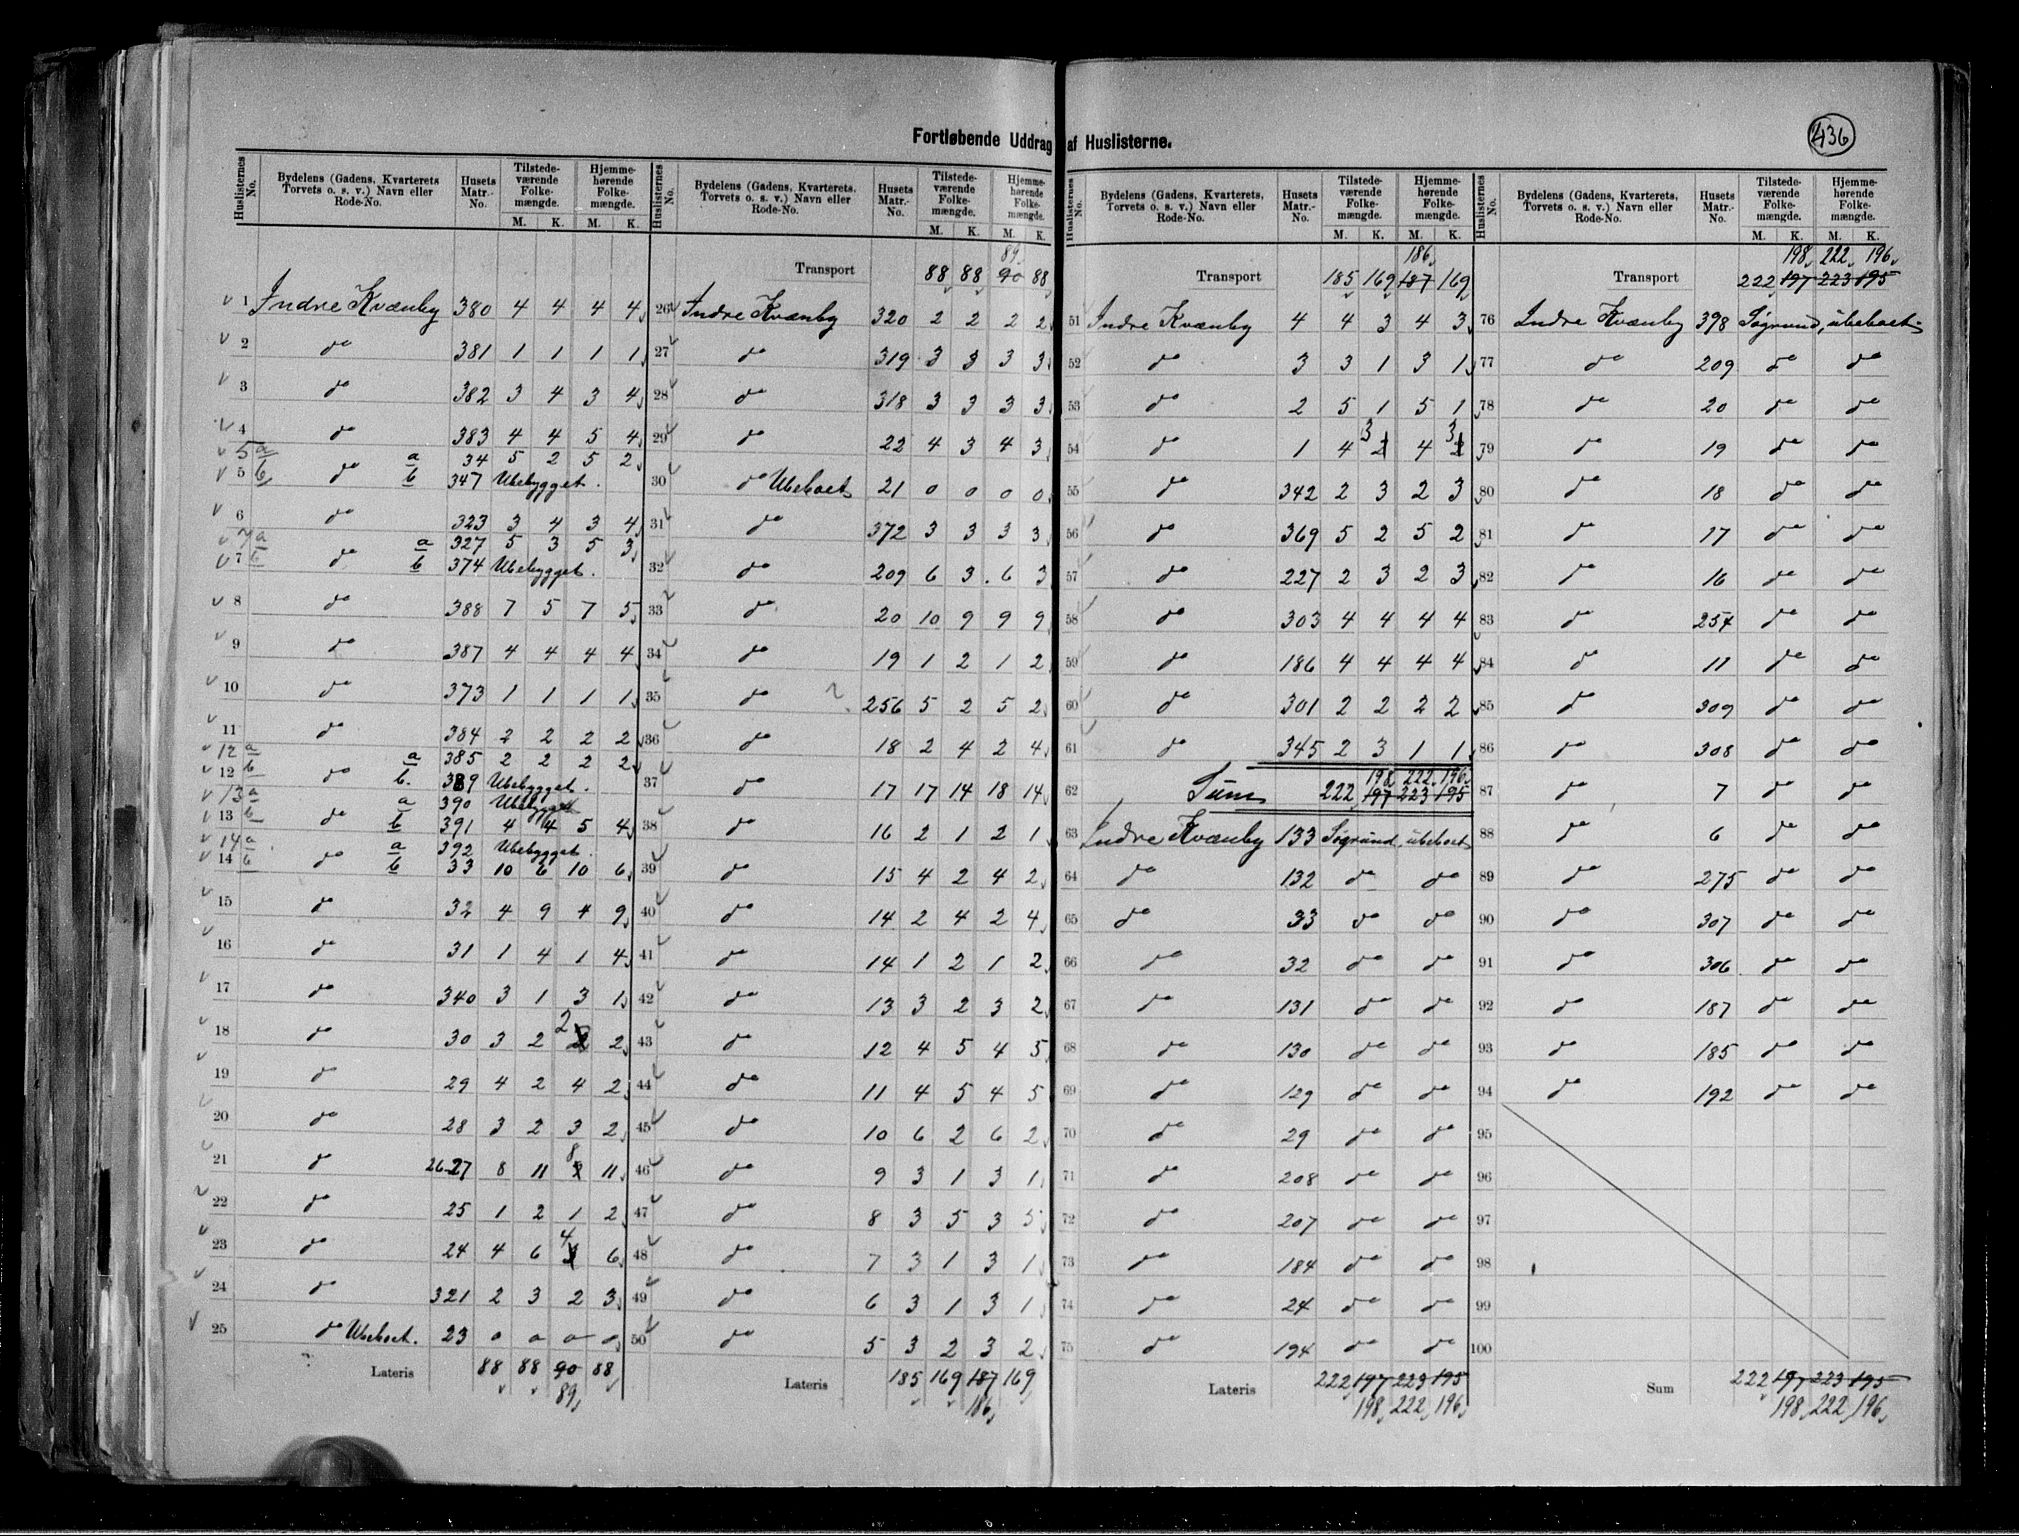 Fortløbende Uddrag af Huslisterne.
436
Huslisternes No. Bydelens (Gadens, Kvarterets Torvets o. s. v.) Navn eller Rode-No. Husets Matr.-No. Tilstede-værende Folke-mængde. M. K. Hjemme-hørende Folke-mængde. M. K.
1 Indre Kvænby 380 4 4 4 4
2 do 381 1 1 1 1
3 do 382 3 4 3 4
4 do 383 4 4 5 4
5a a 34 5 2 5 2
5 b do b 347 Ubebygget.
6 do 323 3 4 3 4
7a a 327 5 3 5 3
7 b do b 374 Ubebygget.
8 do 388 7 5 7 5
9 do 387 4 4 4 4
10 do 373 1 1 1 1
11 do 384 2 2 2 2
12 a a 385 2 2 2 2
12 b do b. 389 Ubebygget.
13 a a 390 Ubebygget
13 b do b 391 4 4 5 4
14 a a 392 Ubebygget.
14 b do b 33 10 6 10 6
15 do 32 4 9 4 9
16 do 31 1 4 1 4
17 do 340 3 1 3 1
18 do 30 3 2 2 2
19 do 29 4 2 4 2
20 do 28 3 2 3 2
21 do 26-27 8 11 8 11
22 do 25 1 2 1 2
23 do 24 4 6 4 6
24 do 321 2 3 2 3
25 do Ubeboet. 23 0 0 0 0
Lateris 88 88 90 88
89
Huslisternes No. Bydelens (Gadens, Kvarterets, Torvets o. s. v.) Navn eller Rode-No. Husets Matr.-No. Tilstede-værende Folke-mængde. M. K. Hjemme-hørende Folke-mængde. M. K.
89
Transport 88 88 90 88
26 Indre Kvænby 320 2 2 2 2
27 do 319 3 3 3 3
28 do 318 3 3 3 3
29 do 22 4 3 4 3
30 do Ubeboet 21 0 0 0 0
31 do 372 3 3 3 3
32 do 209 6 3 6 3
33 do 20 10 9 9 9
34 do 19 1 2 1 2
35 do 256 5 2 5 2
36 do 18 2 4 2 4
37 do 17 17 14 18 14
38 do 16 2 1 2 1
39 do 15 4 2 4 2
40 do 14 2 4 2 4
41 do 14 1 2 1 2
42 do 13 3 2 3 2
43 do 12 4 5 4 5
44 do 11 4 5 4 5
45 do 10 6 2 6 2
46 do 9 3 1 3 1
47 do 8 3 5 3 5
48 do 7 3 1 3 1
49 do 6 3 1 3 1
50 do 5 3 2 3 2
Lateris 185 169 187 169
186
Huslisternes No. Bydelens (Gadens, Kvarterets, Torvets o. s. v.) Navn eller Rode-No. Husets Matr.-No. Tilstede-værende Folke-mængde. M. K. Hjemme-hørende Folke-mængde. M. K.
186
Transport 185 169 187 169
51 Indre Kvænby 4 4 3 4 3
52 do 3 3 1 3 1
53 do 2 5 1 5 1
54 do 1 4 3 4 3
55 do 342 2 3 2 3
56 do 369 5 2 5 2
57 do 227 2 3 2 3
58 do 303 4 4 4 4
59 do 186 4 4 4 4
60 do 301 2 2 2 2
61 do 345 2 3 1 1
198 222 196
62 Sum 222 197 223 195
63 Indre Kvænby 133 Søgrund, ubeboet
64 do 132 do do
65 do 33 do do
66 do 32 do do
67 do 131 do do
68 do 130 do do
69 do 129 do do
70 do 29 do do
71 do 208 do do
72 do 207 do do
73 do 184 do do
74 do 24 do do
75 do 194 do do
Lateris 222 197 223 195
198 222 196
Huslisternes No. Bydelens (Gadens, Kvarterets, Torvets o. s. v.) Navn eller Rode-No. Husets Matr.-No. Tilstede-værende Folke-mængde. M. K. Hjemme-hørende Folke-mængde. M. K.
198 222 196
Transport 222 197 223 195
76 Indre Kvænby 398 Søgrund, ubeboet
77 do 209 do do
78 do 20 do do
79 do 19 do do
80 do 18 do do
81 do 17 do do
82 do 16 do do
83 do 257 do do
84 do 11 do do
85 do 309 do do
86 do 308 do do
87 do 7 do do
88 do 6 do do
89 do 275 do do
90 do 307 do do
91 do 306 do do
92 do 187 do do
93 do 185 do do
94 do 192 do do
95
96
97
98
99
100
Sum 222 197 223 195
198 222 196